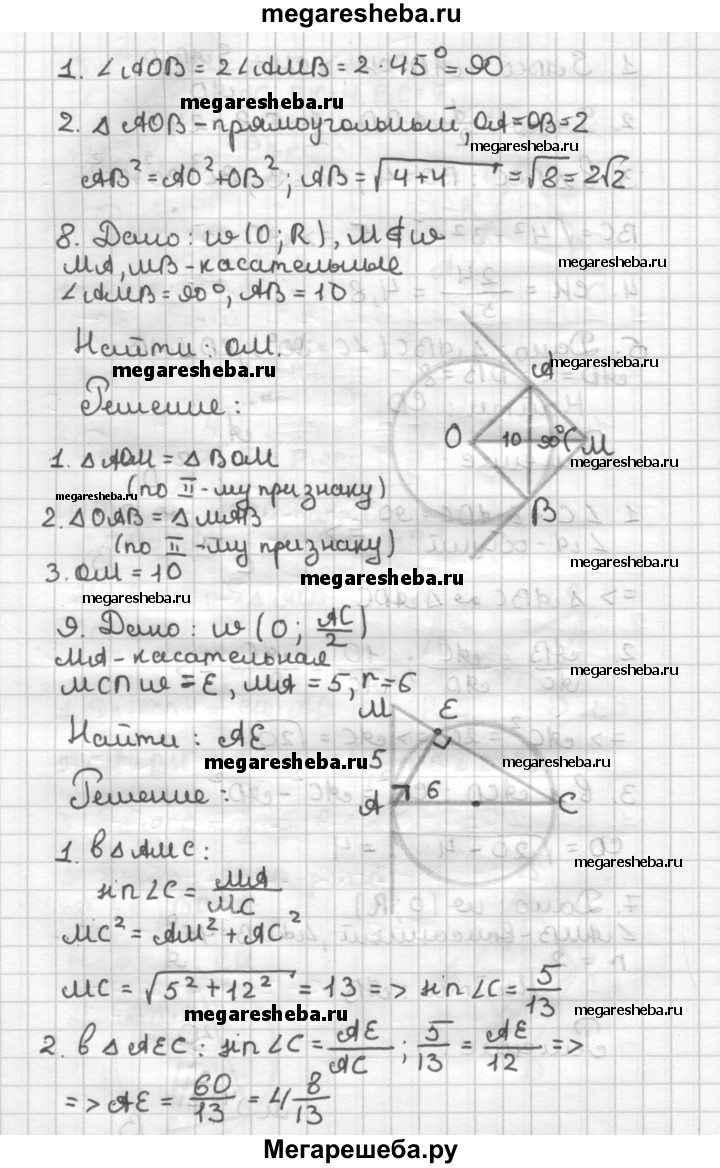 megaresheba.ru
1. ∠AOB = 2∠AMB = 2·45° = 90
megaresheba.ru
2. △ AOB – прямоугольный, OA = OB = 2
megaresheba.ru
AB² = AO² + OB²; AB = √4+4 = √8 = 2√2
8. Дано: w(O; R), M∉w
megaresheba.ru
MA, MB - касательные
∠AMB = 90°, AB = 10
Найти: OM.
megaresheba.ru
megaresheba.ru
Решение:
A
O 10 90° M
1. △ AOM = △ BOM
megaresheba.ru
(по II-му признаку)
megaresheba.ru
2. △ OAB = △ MAB
B
(по II-му признаку)
3. OM = 10
megaresheba.ru
megaresheba.ru
9. Дано: w(O; AC/2)
megaresheba.ru
MA - касательная
MC∩w = E, MA = 5, r = 6
M E
Найти: AE
megaresheba.ru
megaresheba.ru
5
Решение:
A 6 C
1. В △ AMC:
megaresheba.ru
sin∠C = MA/MC
MC² = AM² + AC²
megaresheba.ru
MC = √5² + 12² = 13 => sin∠C = 5/13
megaresheba.ru
megaresheba.ru
2. В △ AEC: sin∠C = AE/AC; 5/13 = AE/12 =>
=> AE = 60/13 = 4 8/13
Мегарешеба.ру